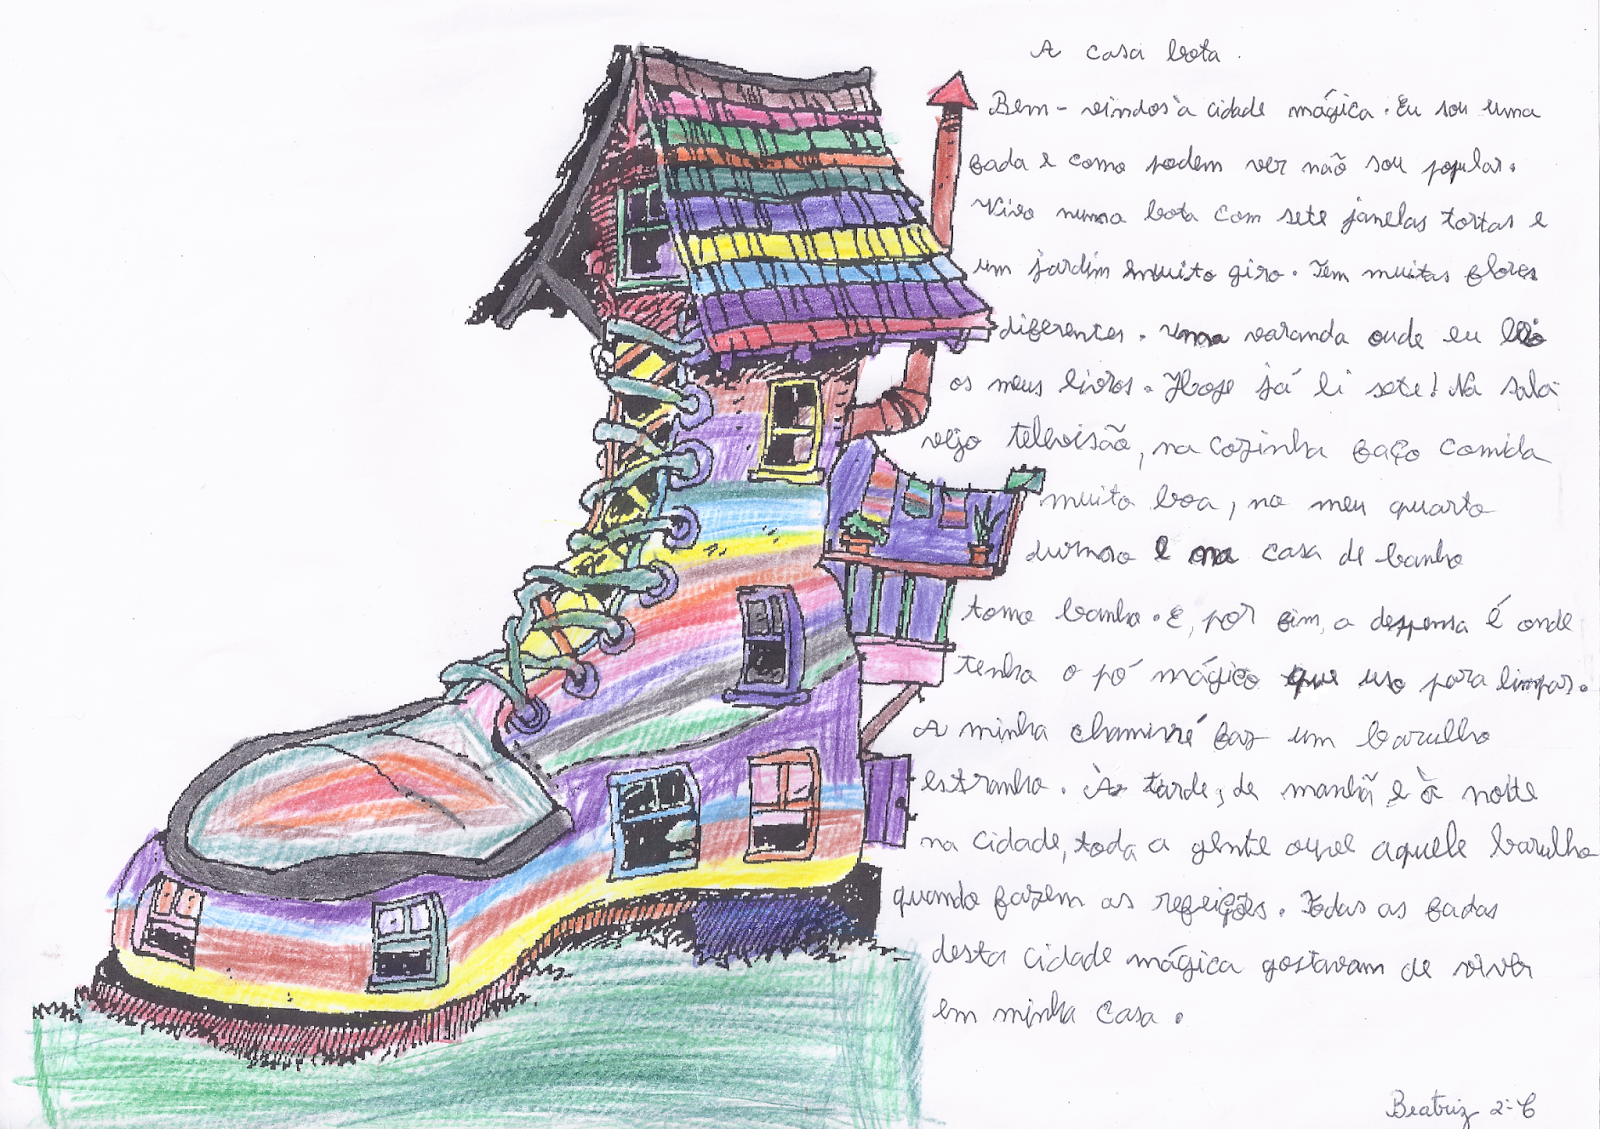 A casa bota.
Bem-vindos à cidade mágica. Eu sou uma
fada e como podem ver não sou popular.
Vivo numa bota com sete janelas tortas e
um jardim muito giro. Tem muitas flores
diferentes. Uma varanda onde eu leio
os meus livros. Hoje já li sete! Na sala
vejo televisão, na cozinha faço comida
muito boa, no meu quarto
durmo e na casa de banho
tomo banho. E, por fim, a despensa é onde
tenho o pó mágico que uso para limpar.
A minha chaminé faz um barulho
estranho. À tarde, de manhã, e à noite
na cidade, toda a gente ouve aquele barulho
quando fazem as refeições. Todas as fadas
desta cidade mágica gostavam de viver
em minha casa.
Beatriz 2.º C